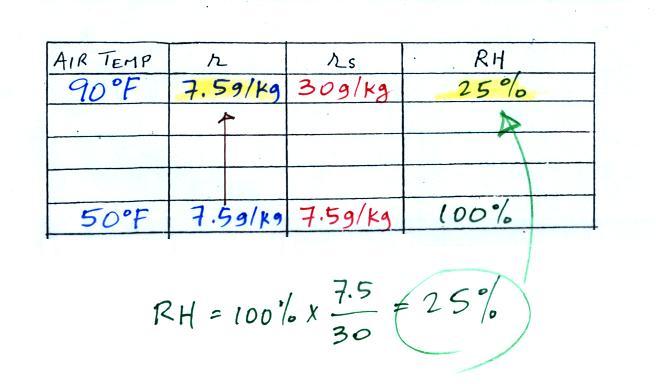 AIR TEMP r rs RH
90°F 7.5g/kg 30g/kg 25%
50°F 7.5g/kg 7.5g/kg 100%
RH = 100% x 7.5/30 = 25%